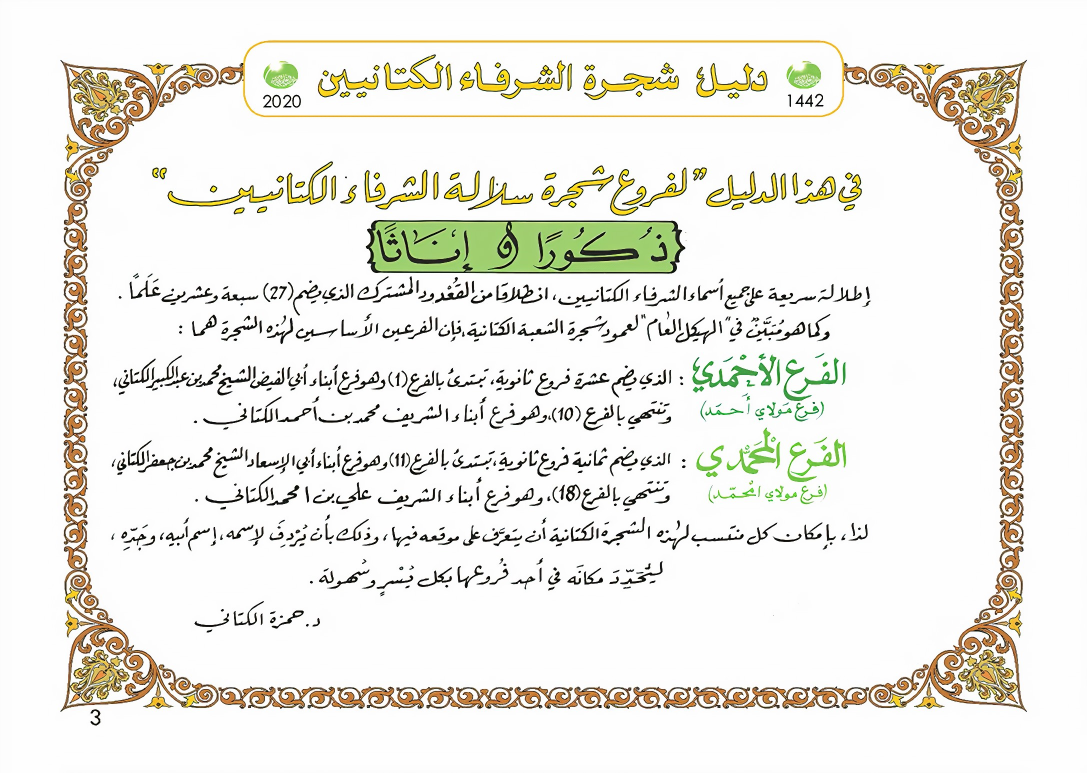 دليل شجرة الشرفاء الكتانيين
2020
1442
في هذا الدليل "لفروع شجرة سلالة الشرفاء الكتانيين"
ذُكُورًا وَ إنَاثًا
إطلالة سريعة على جميع أسماء الشرفاء الكتانيين، انطلاقا من القُعْدود المشترك الذي يضم (27) سبعة وعشرين عَلَمًا .
وكما هو مُبَيَّنٌ في "الهيكل العام" لعمود شجرة الشعبة الكتانية، فإن الفرعين الأساسيين لهذه الشجرة هما :
الفَرع الأَحْمَدي : الذي يضم عشرة فروع ثانوية، تبتدئ بالفرع (1) وهو فرع أبناء أبي الفيض الشيخ محمد بن عبد الكبير الكتاني،
(فرع مَولاي أَحمَد) وتنتهي بالفرع (10)، وهو فرع أبناء الشريف محمد بن أحمد الكتاني .
الفَرع المُحَمَّدي : الذي يضم ثمانية فروع ثانوية، تبتدئ بالفرع (11) وهو فرع أبناء أبي الإسعاد الشيخ محمد بن جعفر الكتاني،
(فرع مولاي امْحمّد) وتنتهي بالفرع (18)، وهو فرع أبناء الشريف علي بن امحمد الكتاني .
لذا، بإمكان كل منتسب لهذه الشجرة الكتانية أن يتعرَّف على موقعه فيها، وذلك بأن يُرْدِفَ لإسمه، إسم أبيه، وجَدِّه ،
ليُحَدِّدَ مكانَه في أحد فُروعها بكل يُسْرٍ وسُهولة .
د. حمزة الكتاني
3